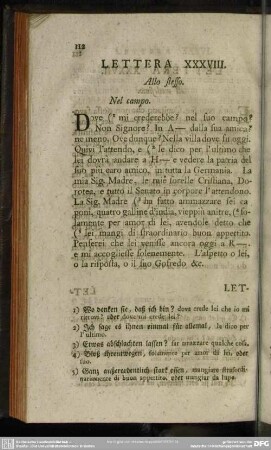 112
LETTERA XXXVIII.
Allo stesso.
Nel campo.
Dove (¹ mi crederebbe? nel suo campo?
Non Signore! In A— dalla sua amica?
ne meno. Ove dunque? Nella villa dove fu oggi.
Quivi l'attendo, e (² se dico per l'ultimo che
lei dovrà andare a H— e vedere la patria del
suo più caro amico, in tutta la Germania. La
mia Sig. Madre, le mie sorelle Cristiana, Do-
rotea, e tutto il Senato in corpore l'attendono.
La Sig. Madre (³ ha fatto ammazzare sei ca-
poni, quattro galline d'india, vieppiù anitre, (⁴ so-
lamente per amor di lei, avendole detto che
(⁵ lei mangi di straordinario buon appetito.
Penserei che lei venisse ancora oggi a R—.
e mi accogliesse solennemente. L'aspetto o lei,
o la risposta, o il suo Gofredo &c.
LET-
1) Wo denken sie, daß ich bin? dove crede lei che io mi
2) Ich sage es ihnen einmal für allemal, lo dico per
l'ultimo.
3) Etwas abschlachten lassen? far ammazzare qualche cosa.
4) Bloß ihrentwegen, solamente per amor di lei, oder
5) Ganz außerordentlich stark essen, mangiare straordi-
nariamente di buon appetito, oder mangiar da lupo.